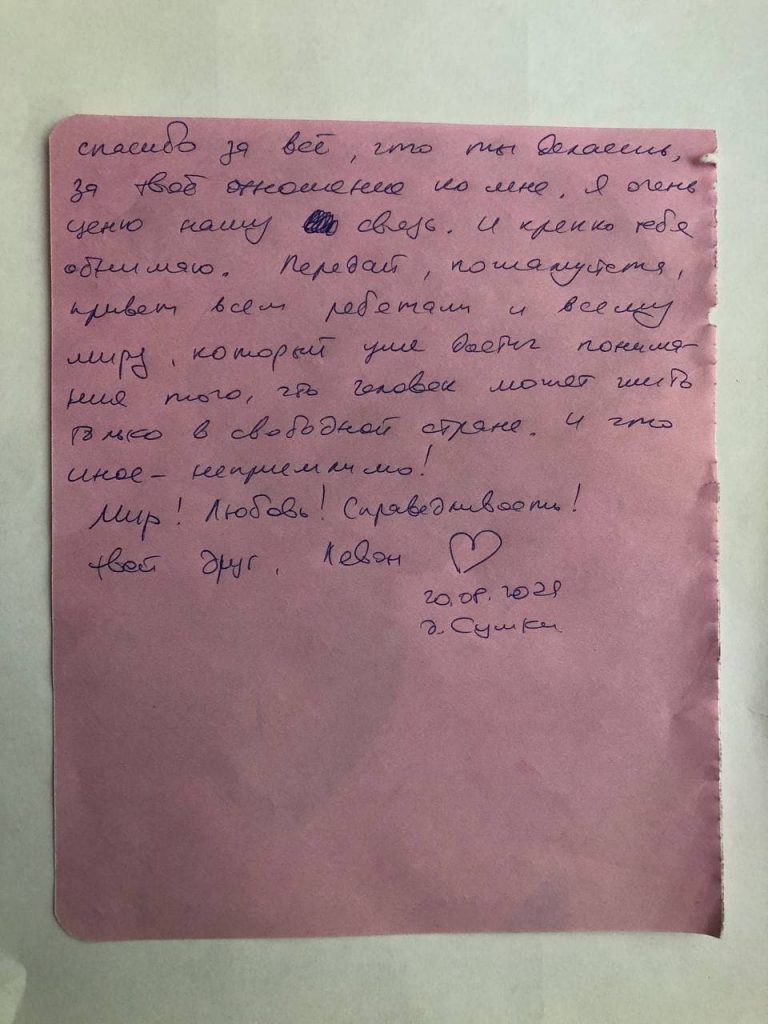 спасибо за всё, что ты делаешь,
за твоё отношение ко мне. Я очень
ценю нашу связь. И крепко тебя
обнимаю. Передай, пожалуйста,
привет всем ребятам и всему
миру, который уже достиг понима-
ния того, что человек может жить
только в свободной стране. И что
иное – неприемлимо!
Мир! Любовь! Справедливость!
твой друг, Левон
20.08.2021
д. Сумки